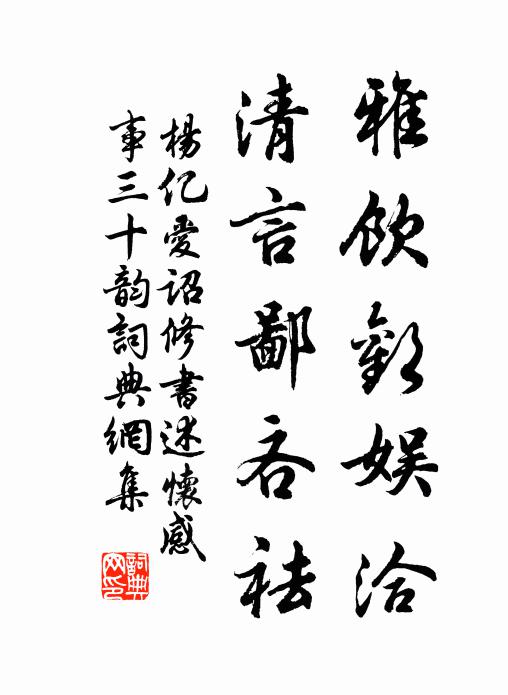 雅飲歡娱洽
清言鄙吝祛
楊亿愛詔修書述懷感
事三十韵詞典網集
詞典網印